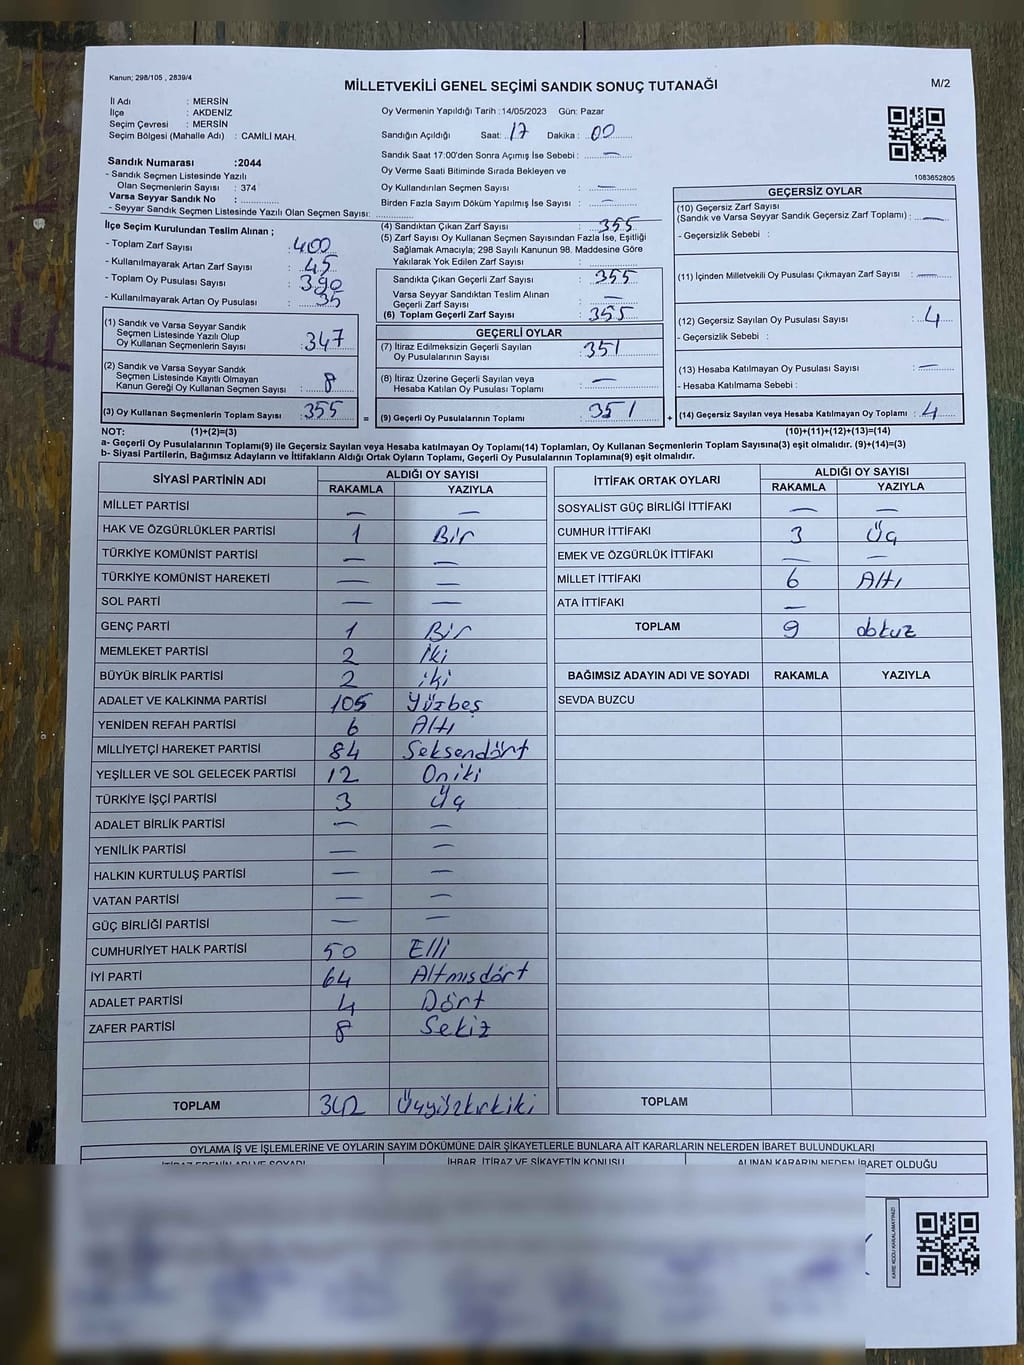 Kanun; 298/105 , 2839/4
MİLLETVEKİLİ GENEL SEÇİMİ SANDIK SONUÇ TUTANAĞI
M/2
İl Adı : MERSİN
İlçe : AKDENİZ
Seçim Çevresi : MERSİN
Seçim Bölgesi (Mahalle Adı) : CAMİLİ MAH.
Sandık Numarası :2044
- Sandık Seçmen Listesinde Yazılı
Olan Seçmenlerin Sayısı : 374
Varsa Seyyar Sandık No : ..................
- Seyyar Sandık Seçmen Listesinde Yazılı Olan Seçmen Sayısı: ..................
Oy Vermenin Yapıldığı Tarih :14/05/2023 Gün: Pazar
Sandığın Açıldığı Saat: 17 Dakika : 00
Sandık Saat 17:00'den Sonra Açımış İse Sebebi : —
Oy Verme Saati Bitiminde Sırada Bekleyen ve
Oy Kullandırılan Seçmen Sayısı : —
Birden Fazla Sayım Döküm Yapılmış İse Sayısı : —
1083652805
İlçe Seçim Kurulundan Teslim Alınan ;
- Toplam Zarf Sayısı : 400
- Kullanılmayarak Artan Zarf Sayısı : 45
- Toplam Oy Pusulası Sayısı : 390
- Kullanılmayarak Artan Oy Pusulası : 35
(1) Sandık ve Varsa Seyyar Sandık
Seçmen Listesinde Yazılı Olup
Oy Kullanan Seçmenlerin Sayısı : 347
(2) Sandık ve Varsa Seyyar Sandık
Seçmen Listesinde Kayıtlı Olmayan
Kanun Gereği Oy Kullanan Seçmen Sayısı : 8
(3) Oy Kullanan Seçmenlerin Toplam Sayısı : 355 =
(4) Sandıktan Çıkan Zarf Sayısı : 355
(5) Zarf Sayısı Oy Kullanan Seçmen Sayısından Fazla İse, Eşitliği
Sağlamak Amacıyla; 298 Sayılı Kanunun 98. Maddesine Göre
Yakılarak Yok Edilen Zarf Sayısı :
Sandıkta Çıkan Geçerli Zarf Sayısı : 355
Varsa Seyyar Sandıktan Teslim Alınan
Geçerli Zarf Sayısı : —
(6) Toplam Geçerli Zarf Sayısı : 355
GEÇERLİ OYLAR
(7) İtiraz Edilmeksizin Geçerli Sayılan
Oy Pusulalarının Sayısı : 351
(8) İtiraz Üzerine Geçerli Sayılan veya
Hesaba Katılan Oy Pusulası Toplamı : —
(9) Geçerli Oy Pusulalarının Toplamı : 351 +
GEÇERSİZ OYLAR
(10) Geçersiz Zarf Sayısı
(Sandık ve Varsa Seyyar Sandık Geçersiz Zarf Toplamı) : —
- Geçersizlik Sebebi :
(11) İçinden Milletvekili Oy Pusulası Çıkmayan Zarf Sayısı : —
(12) Geçersiz Sayılan Oy Pusulası Sayısı : 4
- Geçersizlik Sebebi :
(13) Hesaba Katılmayan Oy Pusulası Sayısı : —
- Hesaba Katılmama Sebebi :
(14) Geçersiz Sayılan veya Hesaba Katılmayan Oy Toplamı : 4
NOT: (1)+(2)=(3) (10)+(11)+(12)+(13)=(14)
a- Geçerli Oy Pusulalarının Toplamı(9) ile Geçersiz Sayılan veya Hesaba katılmayan Oy Toplamı(14) Toplamları, Oy Kullanan Seçmenlerin Toplam Sayısına(3) eşit olmalıdır. (9)+(14)=(3)
b- Siyasi Partilerin, Bağımsız Adayların ve İttifakların Aldığı Ortak Oyların Toplamı, Geçerli Oy Pusulalarının Toplamına(9) eşit olmalıdır.
SİYASİ PARTİNİN ADI ALDIĞI OY SAYISI
RAKAMLA YAZIYLA
MİLLET PARTİSİ — —
HAK VE ÖZGÜRLÜKLER PARTİSİ 1 Bir
TÜRKİYE KOMÜNİST PARTİSİ — —
TÜRKİYE KOMÜNİST HAREKETİ — —
SOL PARTİ — —
GENÇ PARTİ 1 Bir
MEMLEKET PARTİSİ 2 İki
BÜYÜK BİRLİK PARTİSİ 2 iki
ADALET VE KALKINMA PARTİSİ 105 Yüzbeş
YENİDEN REFAH PARTİSİ 6 Altı
MİLLİYETÇİ HAREKET PARTİSİ 84 Seksendört
YEŞİLLER VE SOL GELECEK PARTİSİ 12 Oniki
TÜRKİYE İŞÇİ PARTİSİ 3 Üç
ADALET BİRLİK PARTİSİ — —
YENİLİK PARTİSİ — —
HALKIN KURTULUŞ PARTİSİ — —
VATAN PARTİSİ — —
GÜÇ BİRLİĞİ PARTİSİ — —
CUMHURİYET HALK PARTİSİ 50 Elli
İYİ PARTİ 64 Altmışdört
ADALET PARTİSİ 4 Dört
ZAFER PARTİSİ 8 Sekiz
TOPLAM 342 Üçyüzkırkiki
İTTİFAK ORTAK OYLARI ALDIĞI OY SAYISI
RAKAMLA YAZIYLA
SOSYALİST GÜÇ BİRLİĞİ İTTİFAKI — —
CUMHUR İTTİFAKI 3 Üç
EMEK VE ÖZGÜRLÜK İTTİFAKI — —
MİLLET İTTİFAKI 6 Altı
ATA İTTİFAKI —
TOPLAM 9 dokuz
BAĞIMSIZ ADAYIN ADI VE SOYADI RAKAMLA YAZIYLA
SEVDA BUZCU
TOPLAM
OYLAMA İŞ VE İŞLEMLERİNE VE OYLARIN SAYIM DÖKÜMÜNE DAİR ŞİKAYETLERLE BUNLARA AİT KARARLARIN NELERDEN İBARET BULUNDUKLARI
İTİRAZ EDENİN ADI VE SOYADI İHBAR, İTİRAZ VE ŞİKAYETİN KONUSU ALINAN KARARIN NEDEN İBARET OLDUĞU
KARE KODU KARALAMAYINIZ!